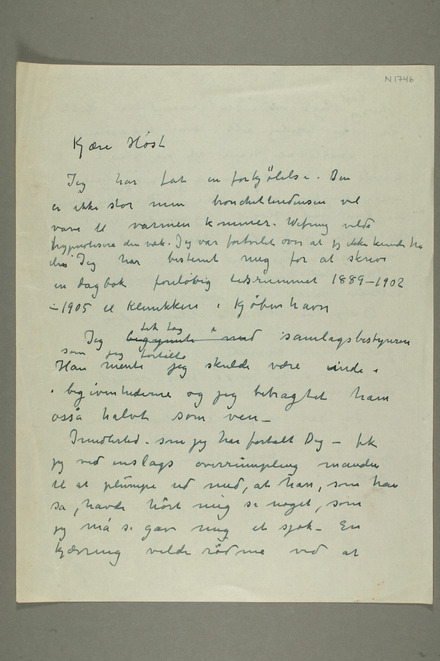 N 1746
Kjære Höst
Jeg har fåt en forkjölelse. Den
er ikke stor men bronchittendensen vil
vare til varmen kommer. Wefring vilde
hypnotisere den væk. Jeg var fortvilet over at jeg ikke kunde ha
Jeg har bestemt mig for at skrive
en dagbok foreløbig tidsrummet 1889–1902
–1905 til klinikken i Kjöbenhavn
lot tog
Jeg begynte med samlagsbestyreren
som jeg fortalte
Han mente jeg skulde være inde i
begivenhederne og jeg betragtet ham
også halvt som ven –
Imidlertid – som jeg har fortalt Dig – fik
jeg ved en slags overrumpling manden
til at plumpe ud med, at han, som han
sa, havde hört mig si noget, som
jeg må si gav mig et sjok – En
kjærring vilde rödme ved at